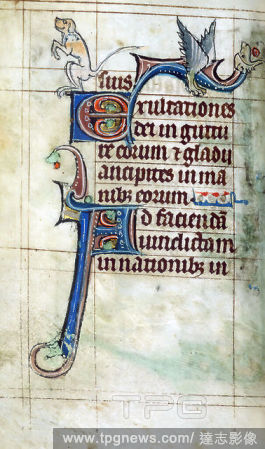 suis
Exultationes
dei in guttu
re eorum ⁊ gladii
ancipites in ma
nibꝫ eorum
Ad faciendā
uindictam
in nationibꝫ in
TPG
www.tpgnews.com/ 達志影像